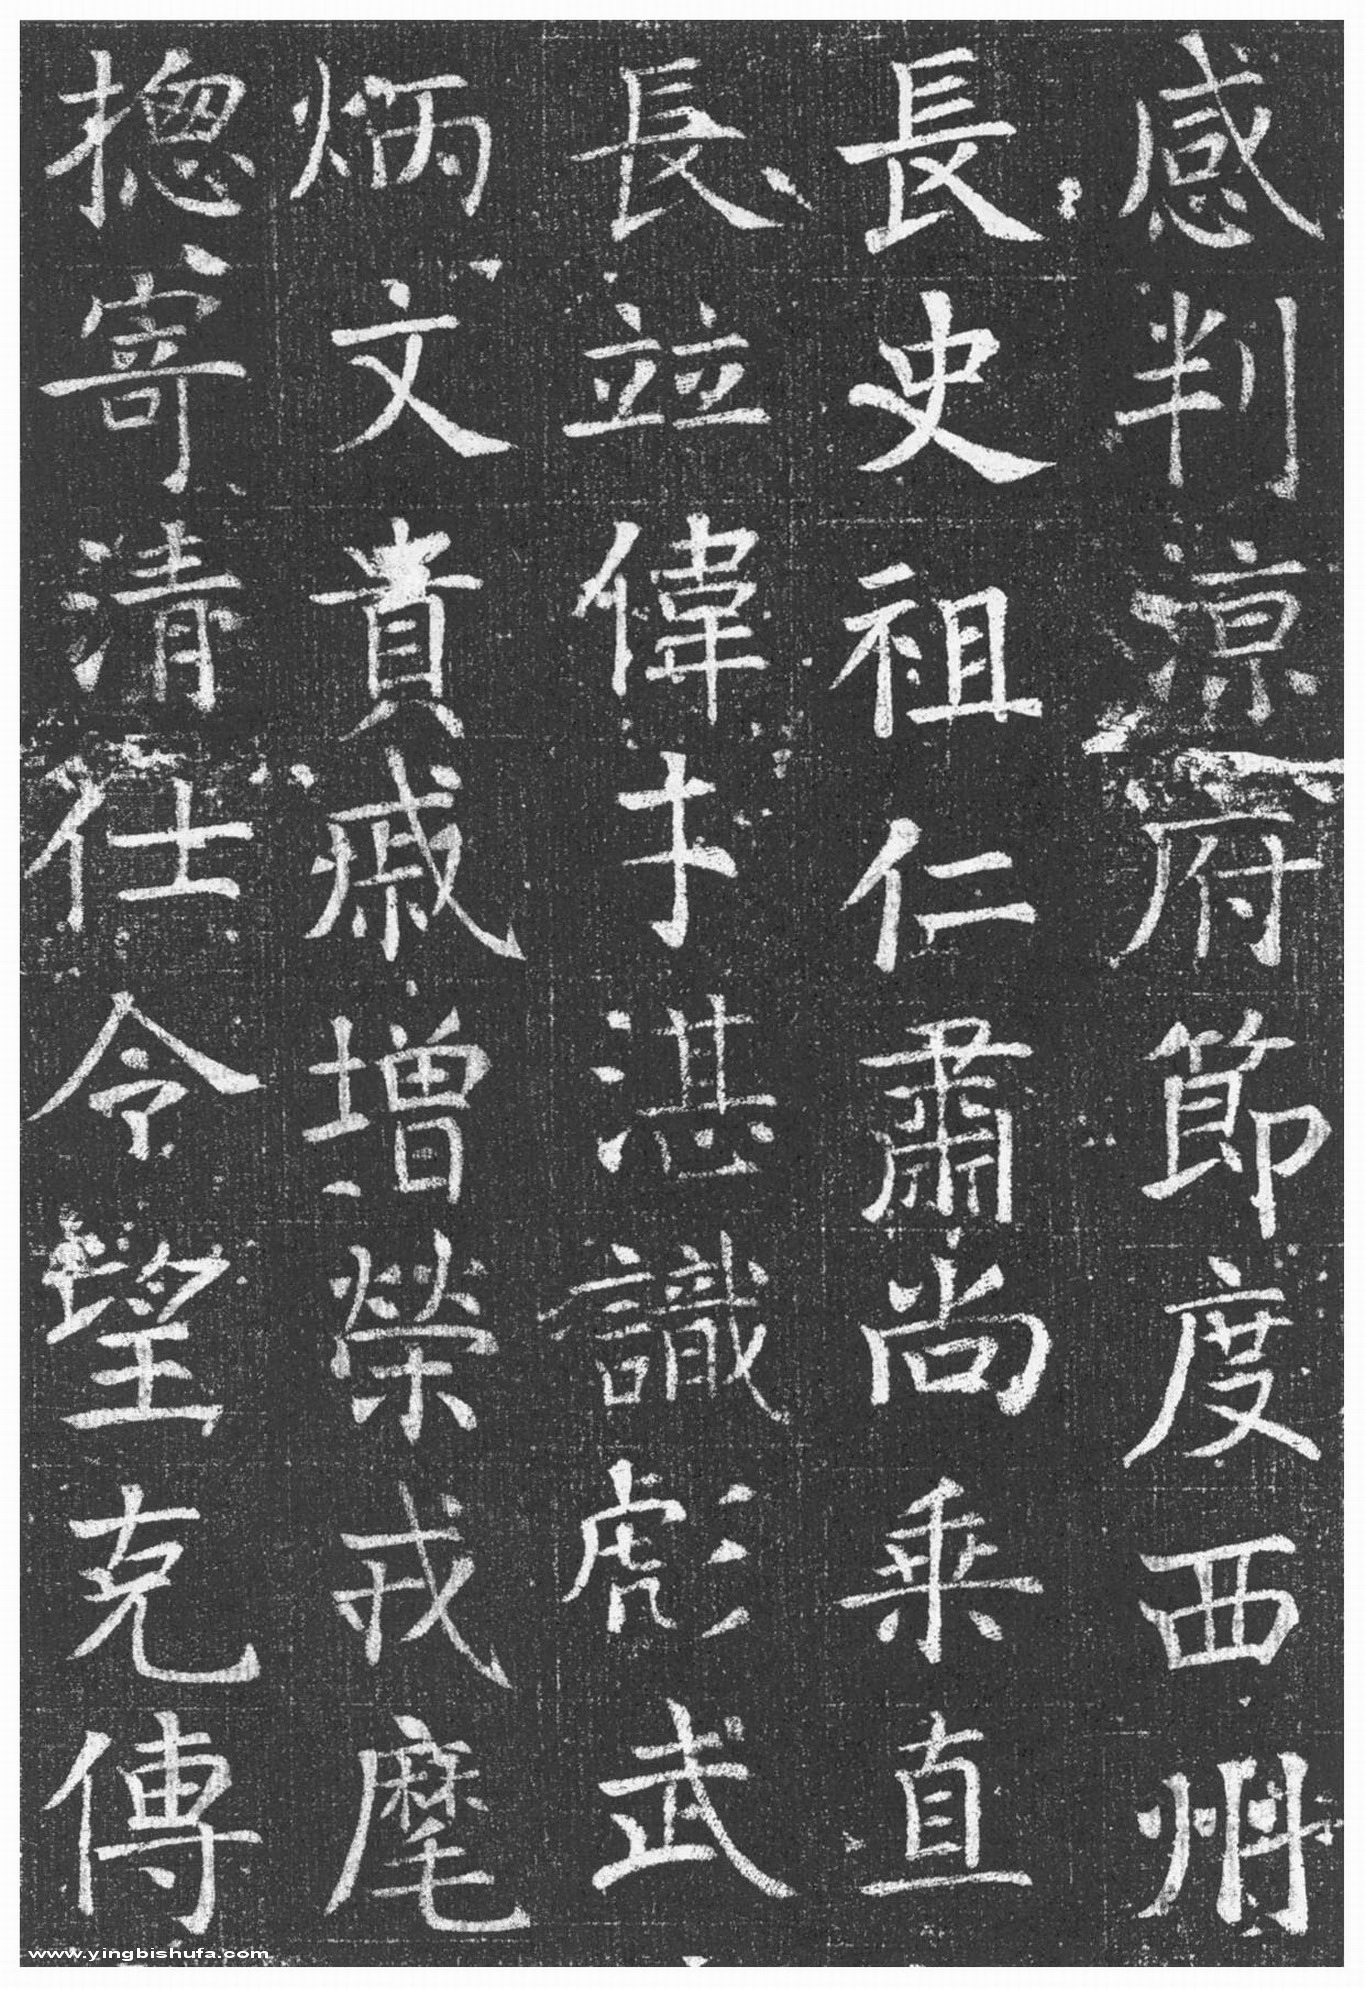 感判涼府節度西州
長史祖仁肅尚乗直
長並偉才湛識彪武
炳文貴戚增榮戎麾
揔寄清任令望克傳
www.yingbishufa.com